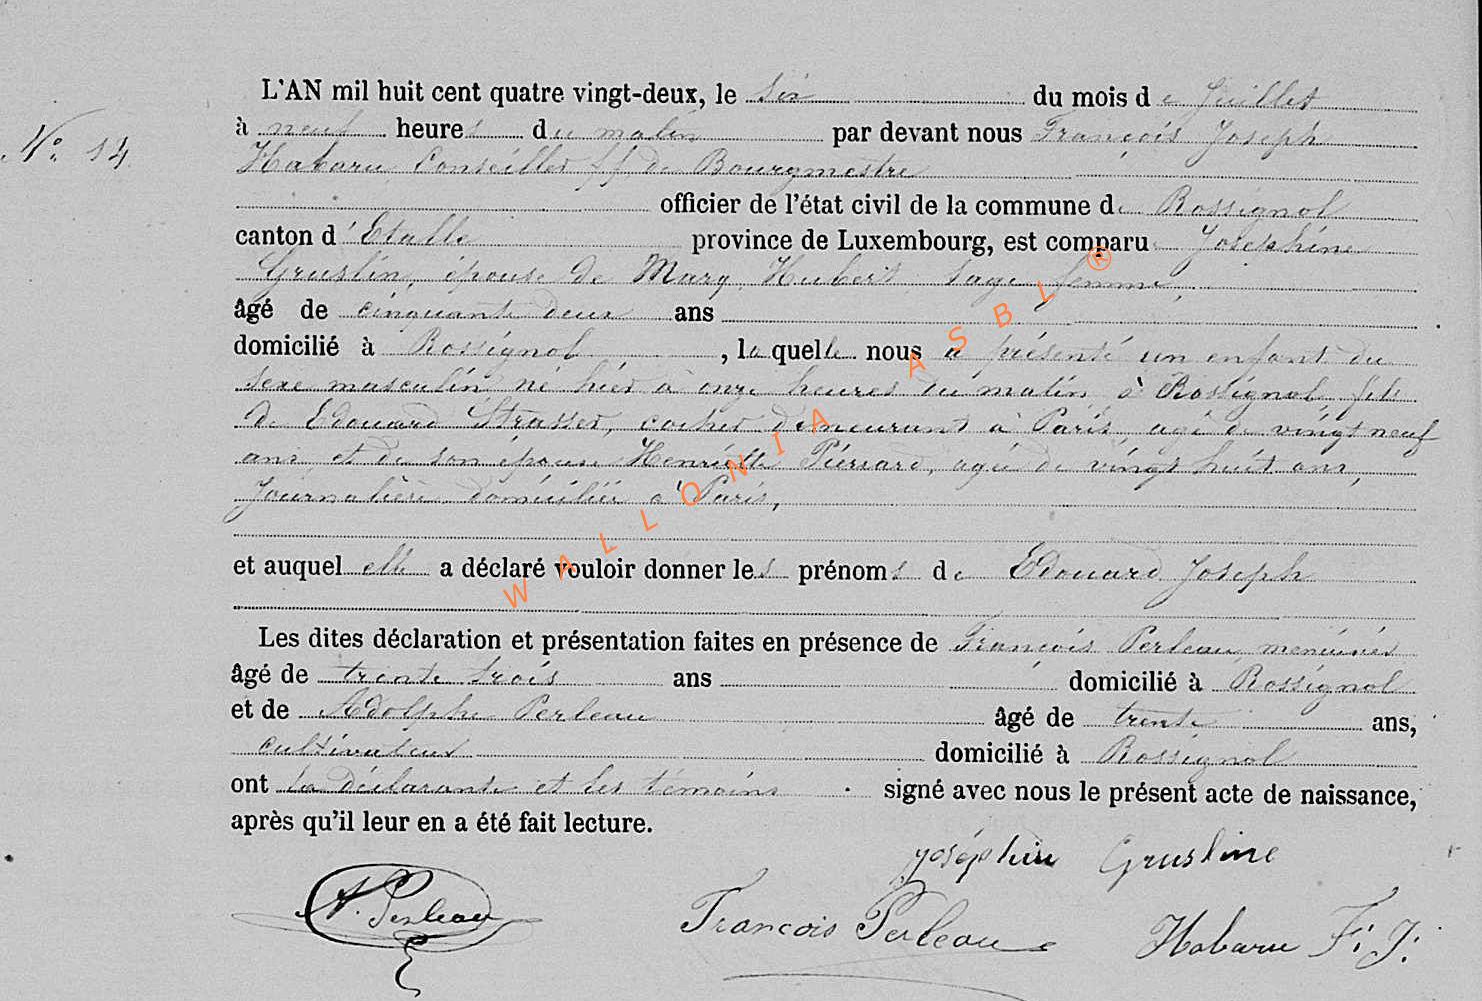 L'AN mil huit cent quatre vingt-deux, le six du mois de Juillet
N° 14
à neuf heures du matin par devant nous François Joseph
Habaru Conseiller ff de Bourgmestre
officier de l'état civil de la commune de Rossignol
canton d'Etalle province de Luxembourg, est comparue Joséphine
Gruslin, épouse de Marq Hubert, sage femme,
âgé de cinquante deux ans
domicilié à Rossignol, laquelle nous a présenté un enfant du
sexe masculin né hier à onze heures du matin à Rossignol fils
de Edouard Strasser, cocher demeurant à Paris, agé de vingt neuf
ans et de son épouse Henriette Piérrard, agée de vingt huit ans,
Journalière domiciliée à Paris,
et auquel elle a déclaré vouloir donner les prénoms de Edouard Joseph
Les dites déclaration et présentation faites en présence de François Perleau, menuisier
âgé de trente trois ans domicilié à Rossignol
et de Adolphe Perleau âgé de trente ans,
cultivateur domicilié à Rossignol
ont la déclarante et les témoins signé avec nous le présent acte de naissance,
après qu'il leur en a été fait lecture.
Joséphine Grusline
A. Perleau
François Perleau
Habaru F. J.
WALLONIA ASBL ®